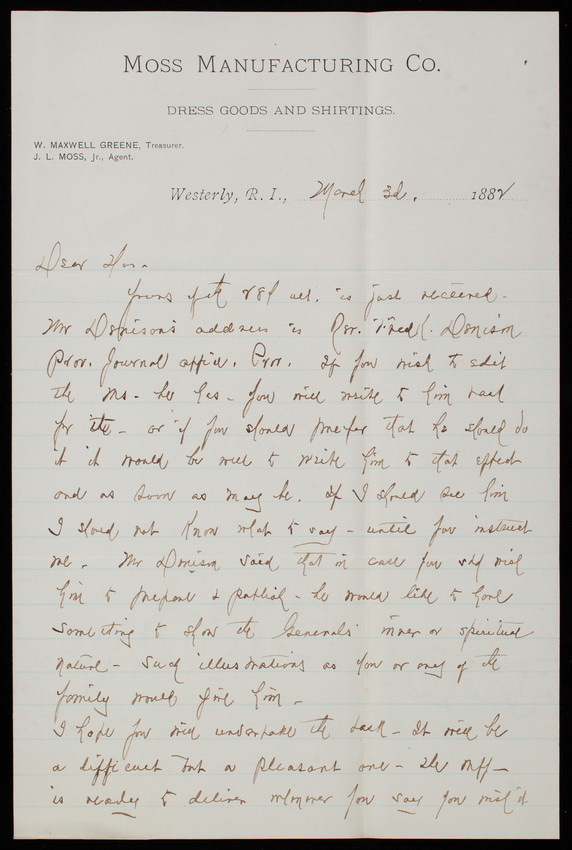 MOSS MANUFACTURING CO.
DRESS GOODS AND SHIRTINGS.
W. MAXWELL GREENE, Treasurer.
J. L. MOSS, Jr., Agent.
Westerly, R. I., March 3d, 1882
Dear
Yours of the 28 is just received.
Mr Denison's address is Rev. Fred K. Denison
Prov. Journal office. Prov. If you wish to edit
the Ms. he has – you will write to him
for it – or if you should prefer that he should do
it it would be well to write him to that effect
and as soon as may be. If I should see him
I should not know what to say – until you instruct
me. Mr Denison said that in case you shd wish
him to prepare & publish – he would like to have
something to show the General's inner or spiritual
nature – such illustrations as you or any of the
family would give him –
I hope you will undertake the task – It will be
a difficult but a pleasant one – the
is ready to deliver whenever you say you wish it